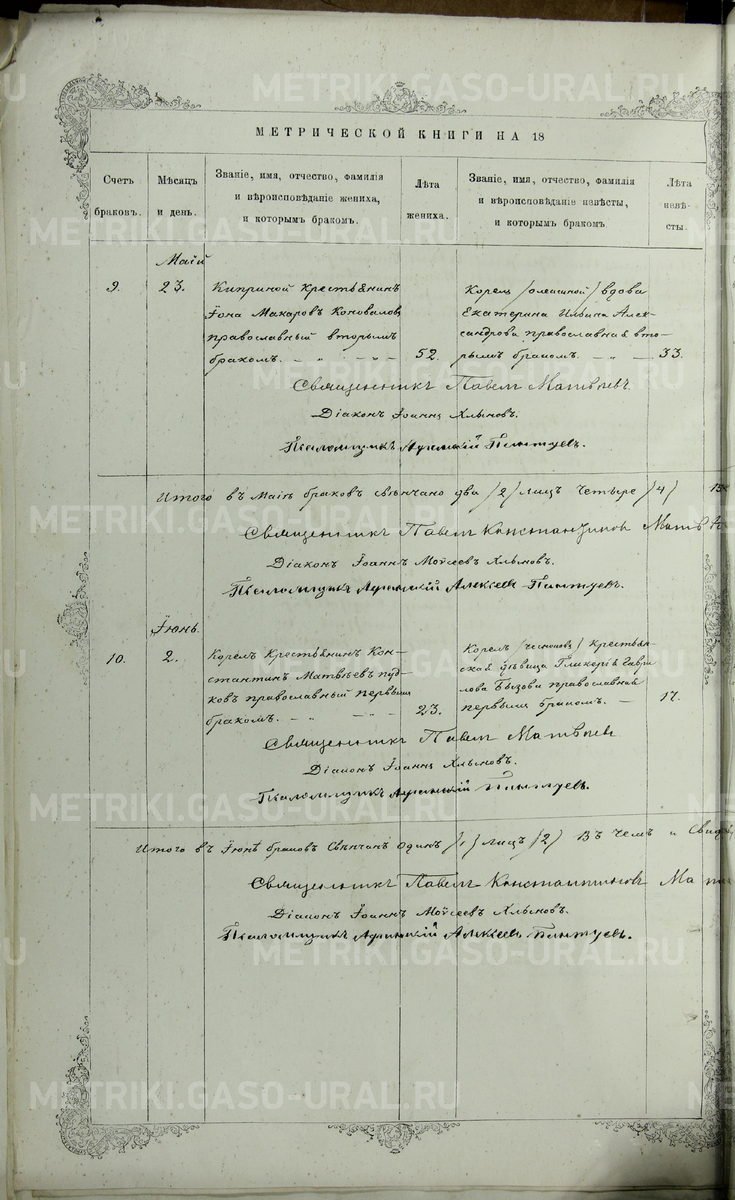 METRIKI.GASO-URAL.RU
МЕТРИЧЕСКОЙ КНИГИ НА 18
Счетъ браковъ.
Мѣсяцъ и день.
Званіе, имя, отчество, фамилія и вѣроисповѣданіе жениха, и которымъ бракомъ.
Лѣта жениха.
Званіе, имя, отчество, фамилія и вѣроисповѣданіе невѣсты, и которымъ бракомъ
Лѣта невѣсты.
Маій
9.
23.
Киприной крестьянинъ
Іона Макаровъ Коновалов
православный вторымъ
бракомъ.
52.
вдова
Екатерина Ильина Алек-
сандрова православная вто-
рымъ бракомъ.
33.
Священникъ Павелъ Матвѣевъ
Діаконъ Іоаннъ Хлыновъ.
Псаломщикъ Пантуевъ.
Итого въ Маіѣ браковъ свѣнчано два /2/ лицъ четыре /4/
Священникъ Павелъ Константинов
Діаконъ Іоаннъ Моисеевъ Хлыновъ.
Псаломщикъ Алексѣев Пантуевъ.
Іюнь.
10.
2.
Корелъ крестьянинъ Кон-
стантинъ Матвѣевъ Пуд-
ковъ православный первымъ
бракомъ.
23.
Корелъ крестьян-
ская дѣвица Гликерія Гаври
лова православная
первымъ бракомъ.
17.
Священникъ Павелъ Матвѣев
Діаконъ Іоаннъ Хлыновъ.
Псаломщикъ Пантуевъ.
Итого въ Іюнѣ браковъ Свѣнчанъ одинъ /1/ лицъ /2/ Въ чемъ и Свид
Священникъ Павелъ Константиновъ
Діаконъ Іоаннъ Моисеевъ Хлыновъ.
Псаломщикъ Алексѣевъ Пантуевъ.